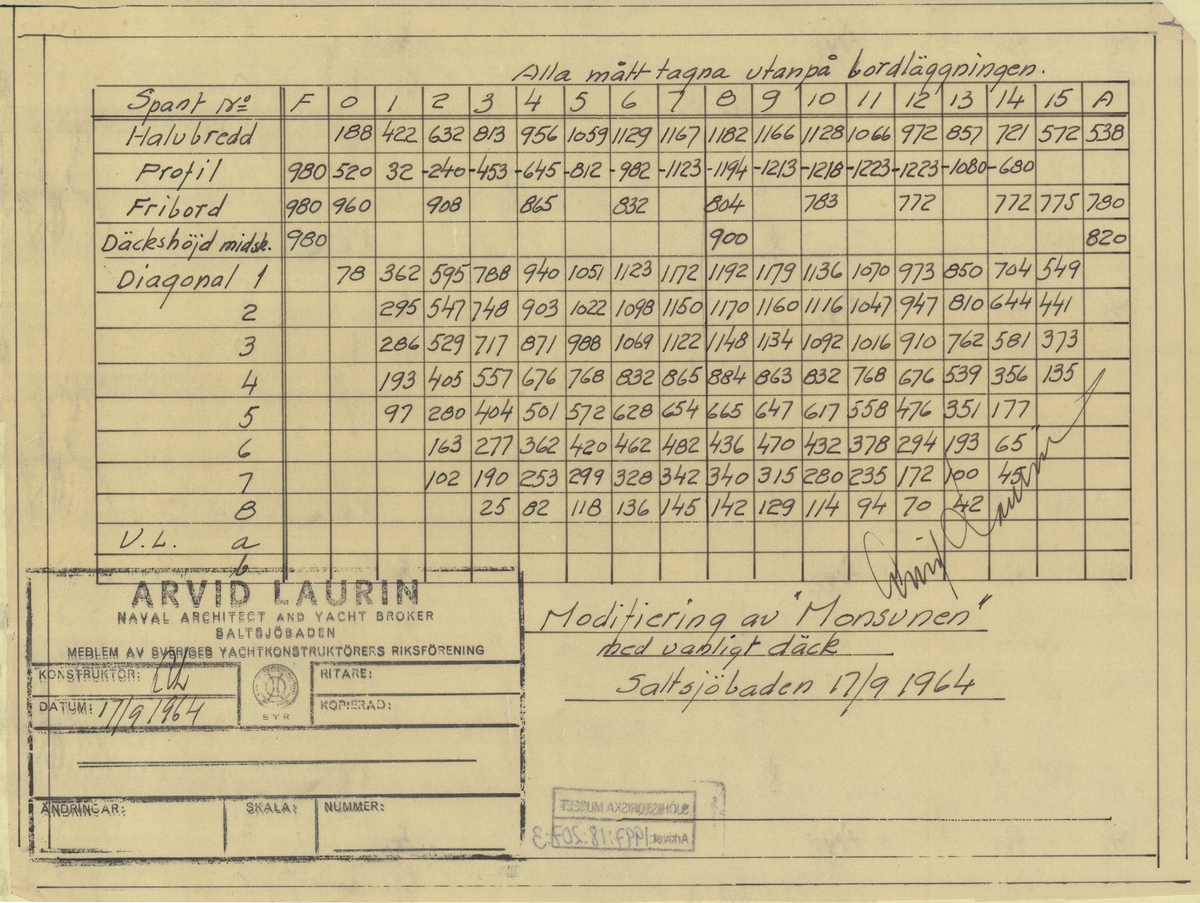 Alla mått tagna utanpå bordläggningen.
Spant No F 0 1 2 3 4 5 6 7 8 9 10 11 12 13 14 15 A
Halvbredd 188 422 632 813 956 1059 1129 1167 1182 1166 1128 1066 972 857 721 572 538
Profil 980 520 32 -240 -453 -645 -812 -982 -1123 -1194 -1213 -1218 -1223 -1223 -1080 -680
Fribord 980 960 908 865 832 804 783 772 772 775 780
Däckshöjd midsk. 980 900 820
Diagonal 1 78 362 595 788 940 1051 1123 1172 1192 1179 1136 1070 973 850 704 549
2 295 547 748 903 1022 1098 1150 1170 1160 1116 1047 947 810 644 441
3 286 529 717 871 988 1069 1122 1148 1134 1092 1016 910 762 581 373
4 193 405 557 676 768 832 865 884 863 832 768 676 539 356 135
5 97 280 404 501 572 628 654 665 647 617 558 476 351 177
6 163 277 362 420 462 482 436 470 432 378 294 193 65
7 102 190 253 299 328 342 340 315 280 235 172 100 45
8 25 82 118 136 145 142 129 114 94 70 42
V.L. a
b
Arvid Laurin
ARVID LAURIN
NAVAL ARCHITECT AND YACHT BROKER
SALTSJÖBADEN
MEDLEM AV SVERIGES YACHTKONSTRUKTÖRERS RIKSFÖRENING
KONSTRUKTÖR: AL
RITARE:
DATUM: 17/9 1964
SYR
KOPIERAD:
ÄNDRINGAR:
SKALA:
NUMMER:
Modifiering av "Monsunen"
med vanligt däck
Saltsjöbaden 17/9 1964
SJÖHISTORISKA MUSEET
Arkivet: 1997:18:207:3